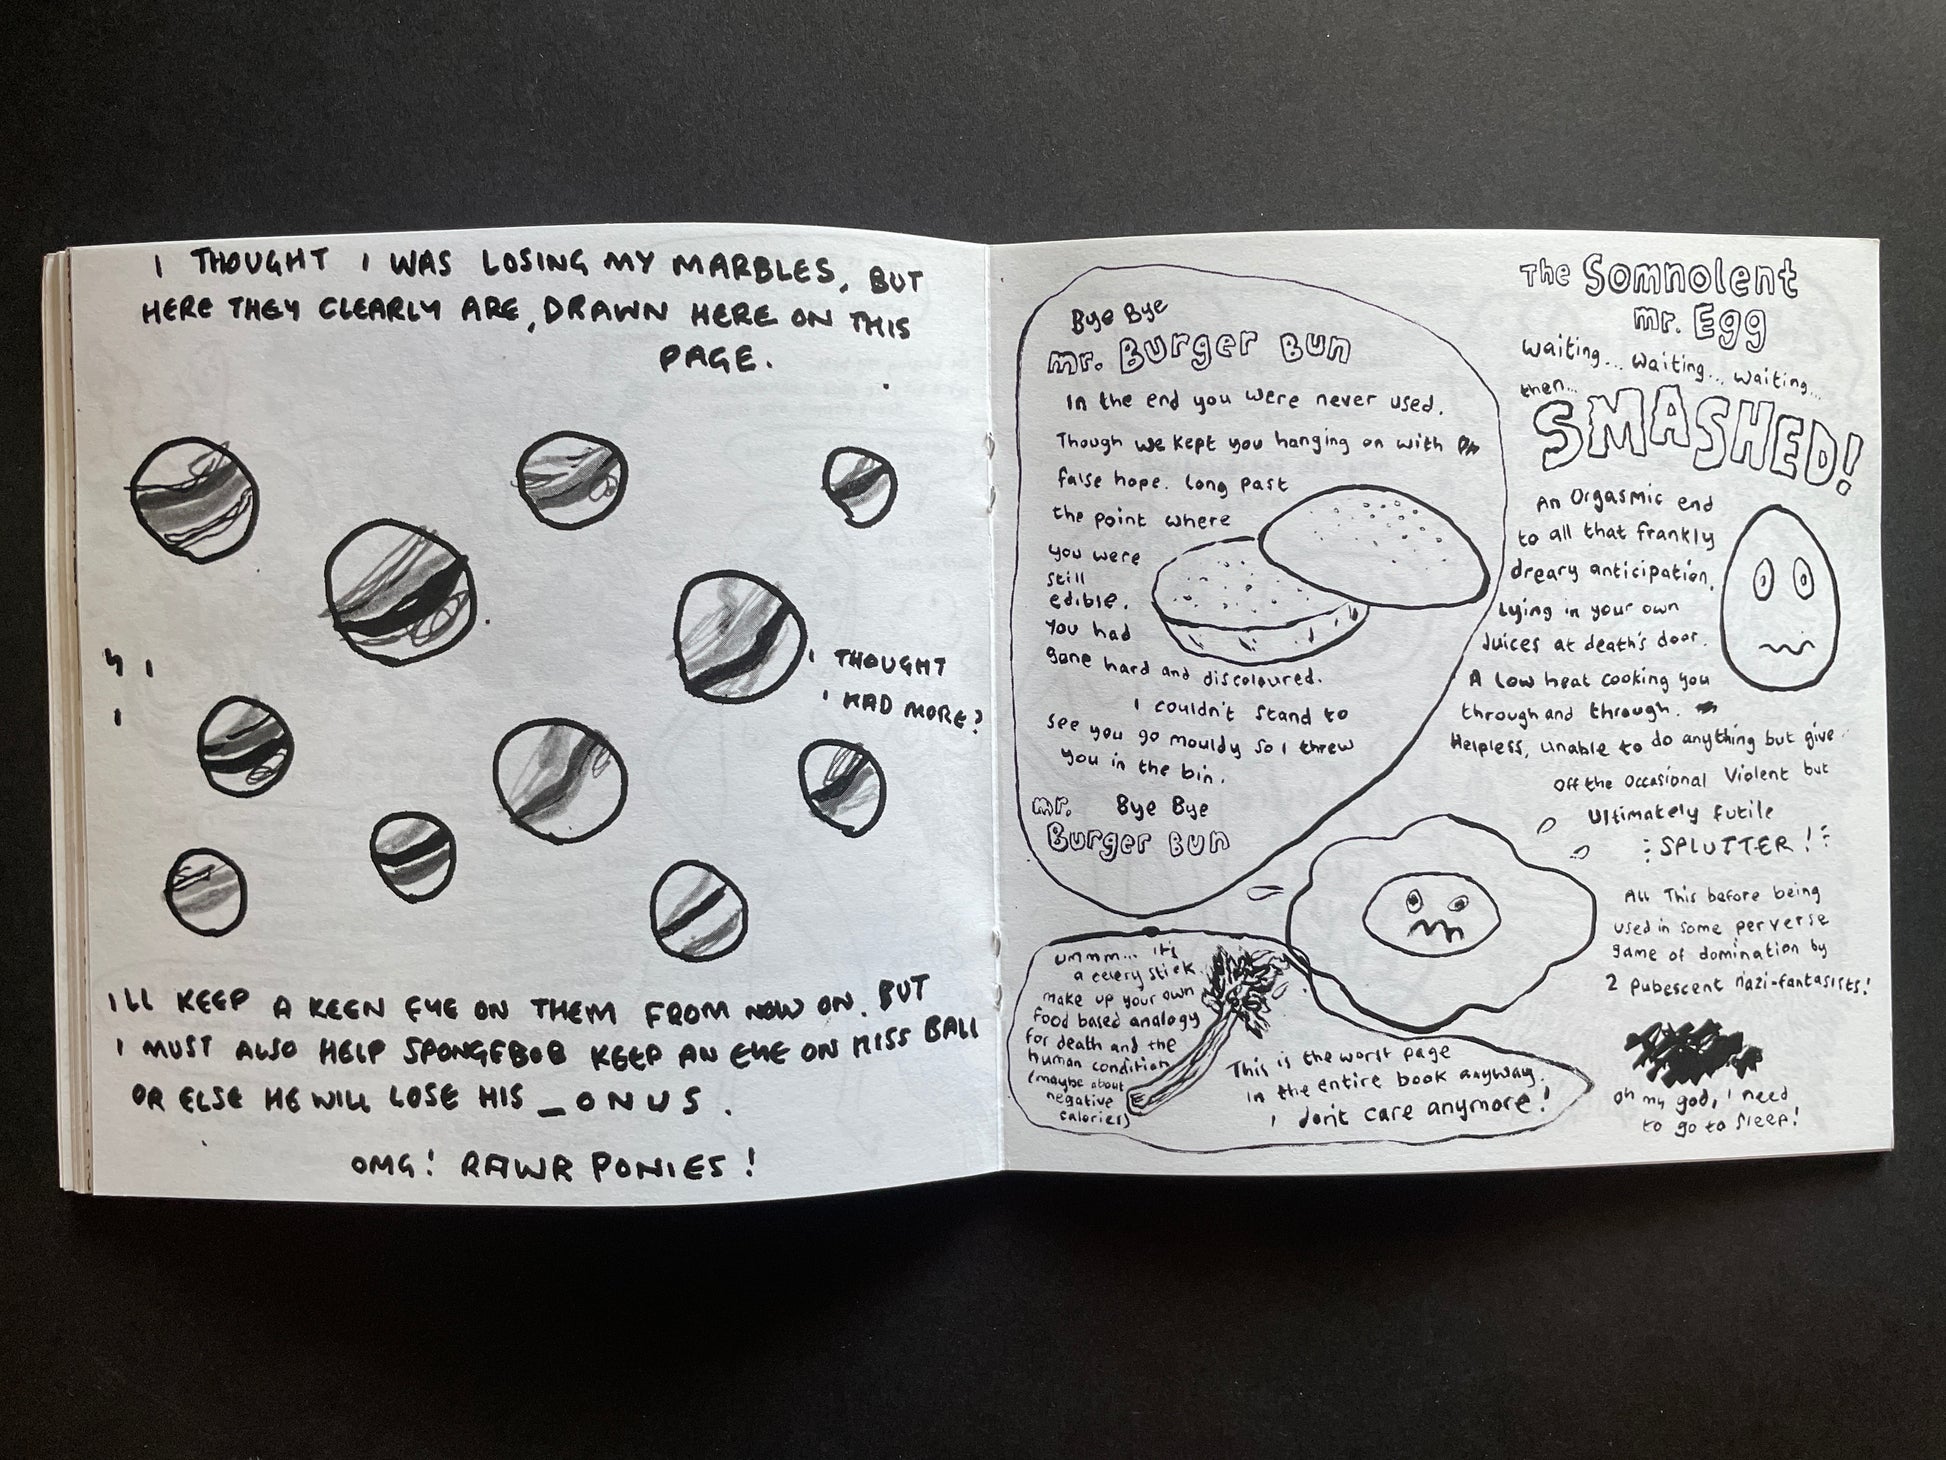 I THOUGHT I WAS LOSING MY MARBLES, BUT
HERE THEY CLEARLY ARE, DRAWN HERE ON THIS
PAGE.
I THOUGHT
I HAD MORE?
ILL KEEP A KEEN EYE ON THEM FROM NOW ON. BUT
I MUST ALSO HELP SPONGEBOB KEEP AN EYE ON MISS BALL
OR ELSE HE WILL LOSE HIS _ONUS.
OMG! RAWR PONIES!
Bye Bye
mr. Burger Bun
In the end you were never used.
Though we kept you hanging on with
false hope. Long past
the point where
you were
still
edible.
You had
gone hard and discoloured.
I couldn't stand to
see you go mouldy so I threw
you in the bin.
Bye Bye
mr.
Burger Bun
ummm... it's
a celery stick.
make up your own
food based analogy
for death and the
human condition
(maybe about
negative
calories)
This is the worst page
in the entire book anyway.
I don't care anymore!
The Somnolent
mr. Egg
waiting... waiting... waiting...
then...
SMASHED!
An Orgasmic end
to all that frankly
dreary anticipation.
Lying in your own
Juices at death's door.
A low heat cooking you
through and through.
Helpless, unable to do anything but give
off the occasional Violent but
Ultimately futile
SPLUTTER!
All This before being
used in some perverse
game of domination by
2 pubescent nazi-fantasists!
oh my god, I need
to go to sleep!